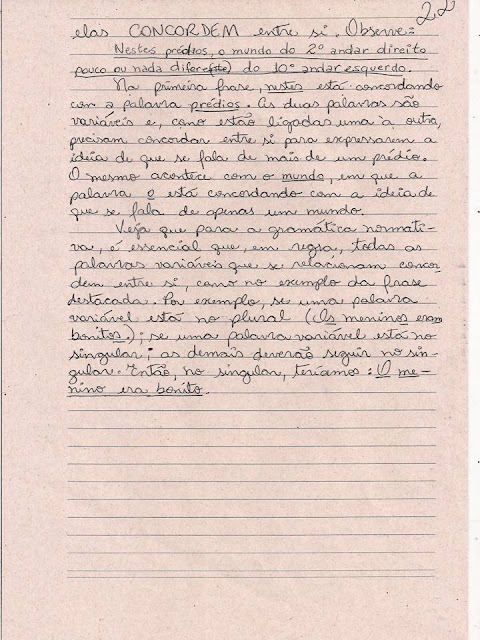 22
elas CONCORDEM entre si. Observe:
Nestes prédios, o mundo do 2º andar direito
pouco ou nada difere(fte) do 10º andar esquerdo.
Na primeira frase, nestes está concordando
com a palavra prédios. As duas palavras são
variáveis e, como estão ligadas uma à outra,
precisam concordar entre si para expressarem a
idéia de que se fala de mais de um prédio.
O mesmo acontece com o mundo, em que a
palavra o está concordando com a ideia de
que se fala de apenas um mundo.
Veja que para a gramática normati-
va, é essencial que, em regra, todas as
palavras variáveis que se relacionam concor
dem entre si, como no exemplo da frase
destacada. Por exemplo, se uma palavra
variável está no plural (Os meninos eram
bonitos.); se uma palavra variável está no
singular; as demais deverão seguir no sin-
gular. Então, no singular, teríamos: O me-
nino era bonito.